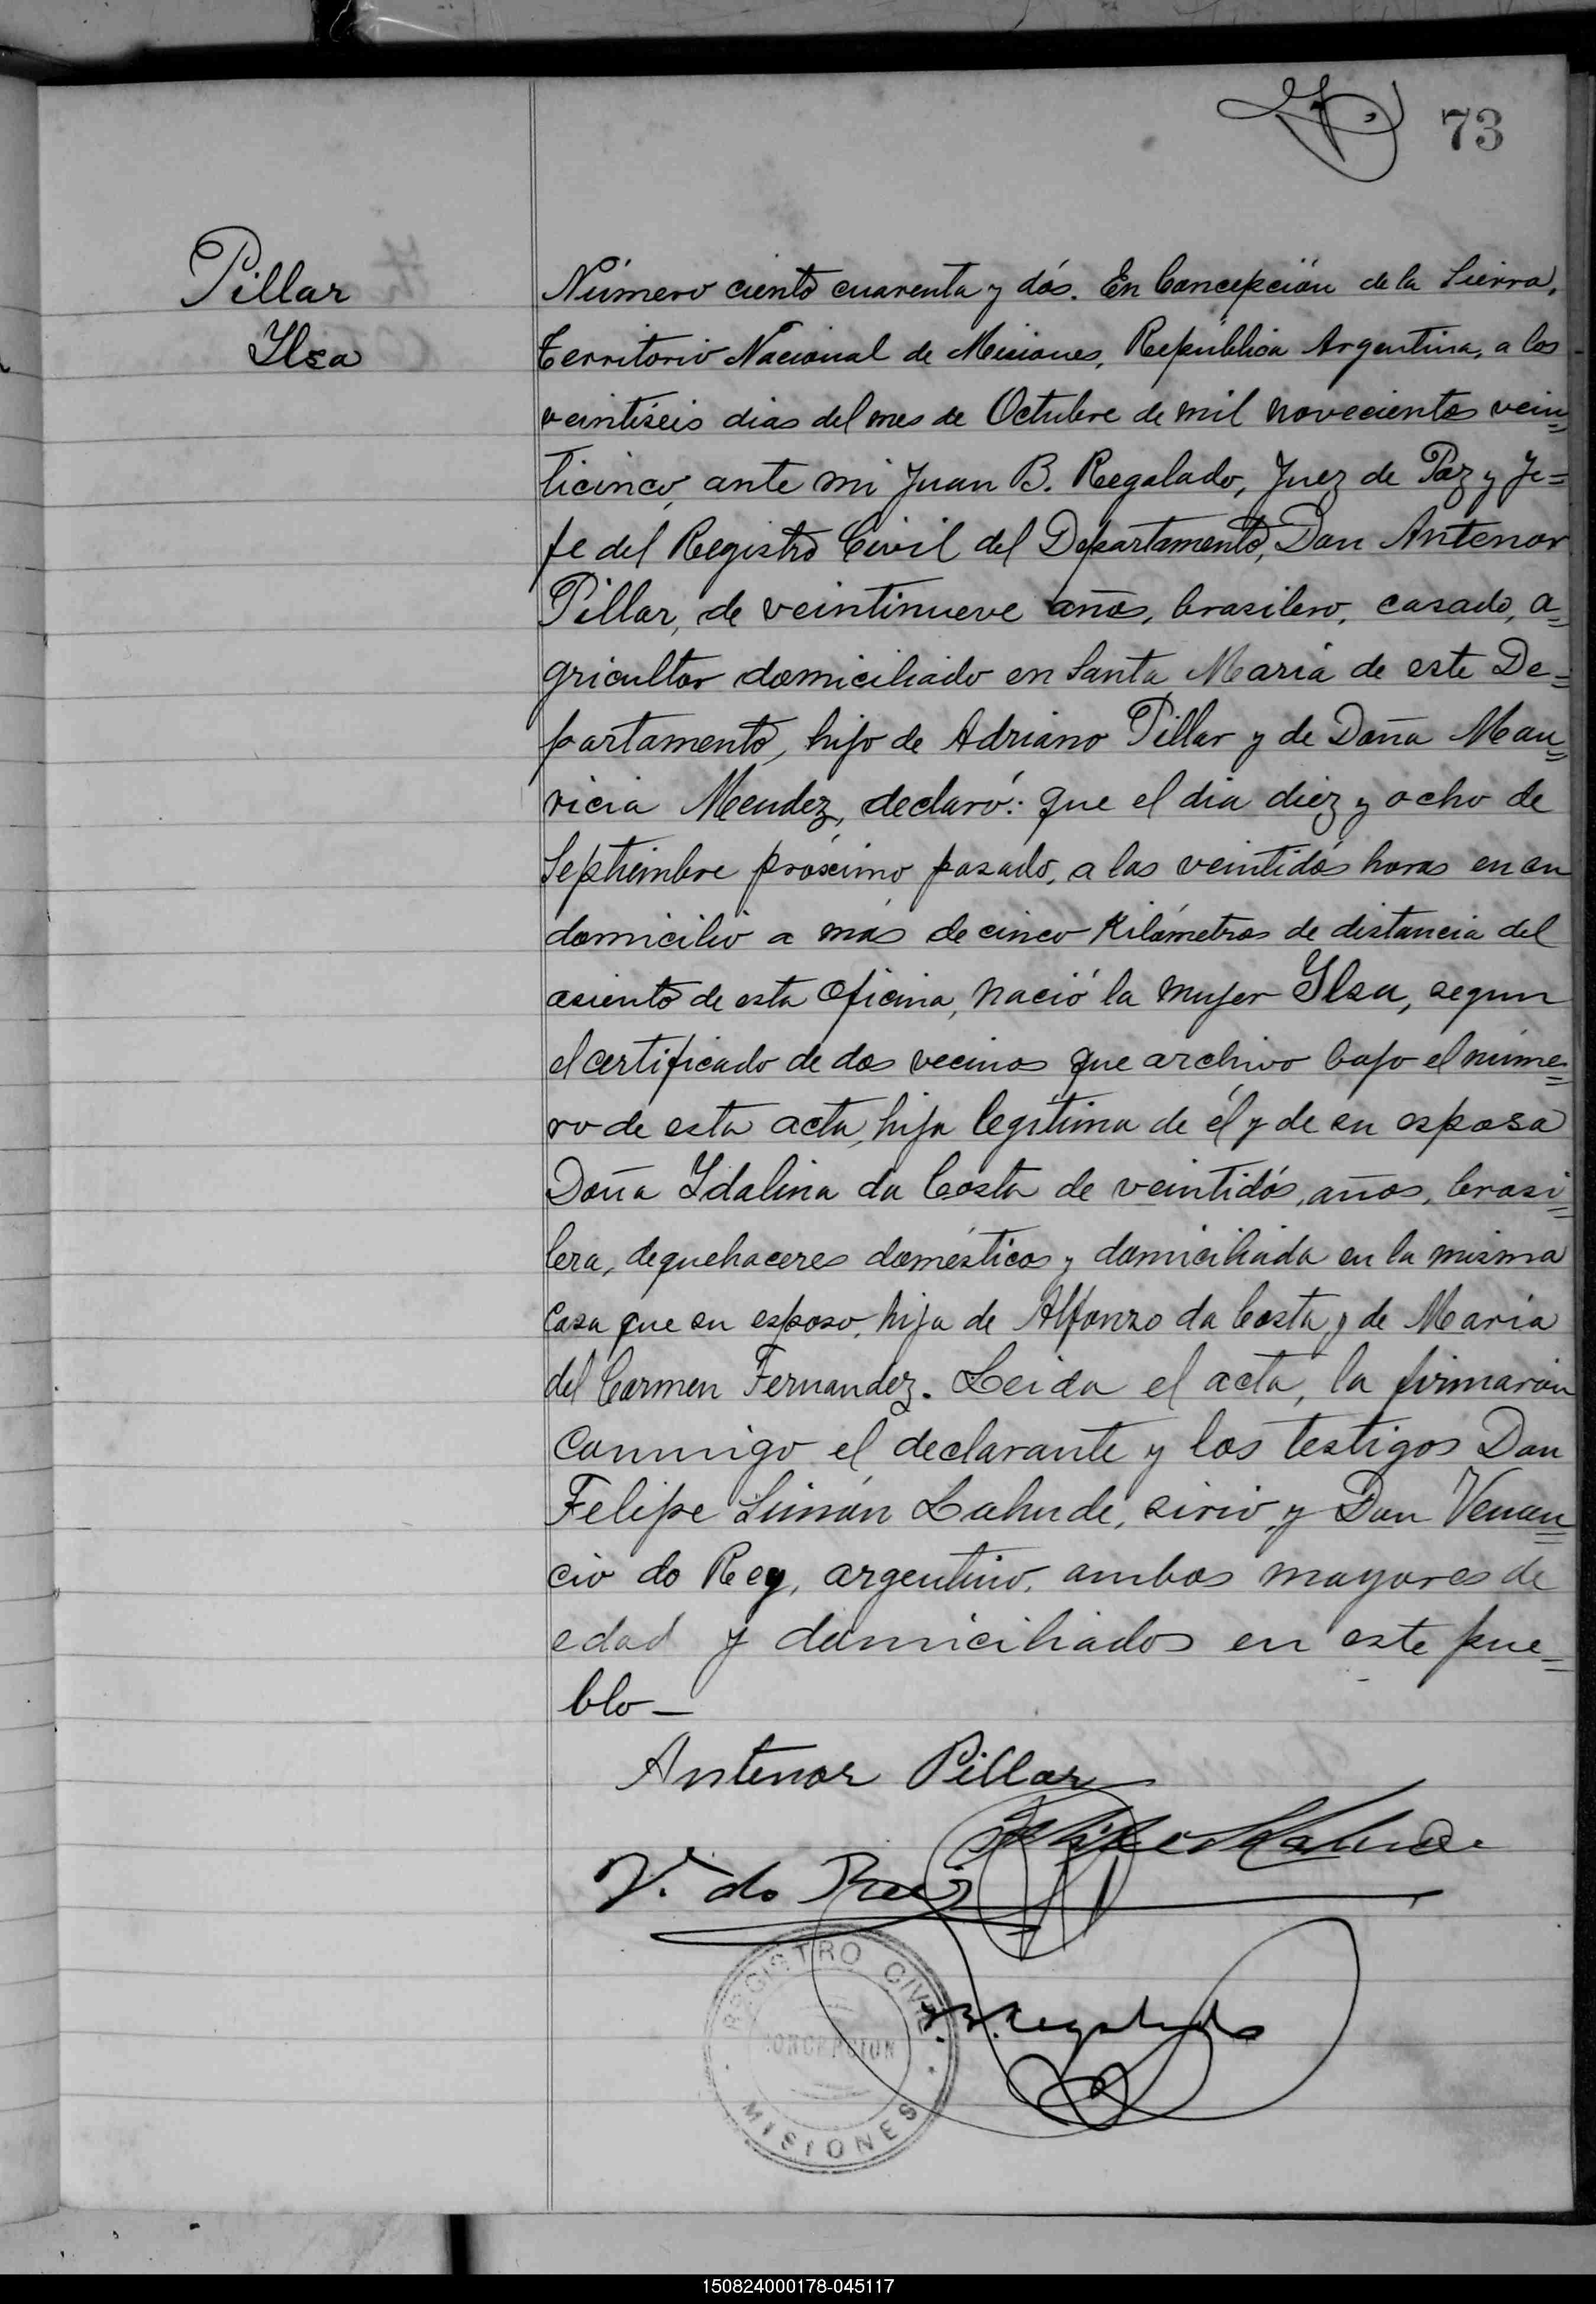 73
Pillar
Ylsa
Número ciento cuarenta y dós. En Concepción de la Sierra,
Territorio Nacional de Misiones, República Argentina, a los
veintiséis dias del mes de Octubre de mil novecientos vein=
ticinco, ante mi Juan B. Regalado, Juez de Paz y Je=
fe del Registro Civil del Departamento, Don Antenor
Pillar, de veintinueve años, brasilero, casado, a=
gricultor domiciliado en Santa María de este De=
partamento, hijo de Adriano Pillar y de Doña Mau=
ricia Mendez, declaró: que el dia diez y ocho de
Septiembre próximo pasado, a las veintidós horas en su
domicilio a más de cinco Kilómetros de distancia del
asiento de esta Oficina, nació la mujer Ylsa, segun
el certificado de dos vecinos que archivo bajo el núme=
ro de esta acta, hija legítima de él y de su esposa
Doña Ydalina da Costa de veintidós, años, brasi=
lera, de quehaceres domésticos y domiciliada en la misma
casa que su esposo, hija de Alfonzo da Costa y de María
del Carmen Fernandez. Leida el acta, la firmarón
conmigo el declarante y los testigos Don
Felipe Simón Lahude, sirio, y Don Venan=
cio do Rey, argentino, ambos mayores de
edad y domiciliados en este pue=
blo —
Antenor Pillar
Felipe S Lahude
V. do Rey
J. B. Regalado
REGISTRO CIVIL
CONCEPCION
MISIONES
150824000178-045117